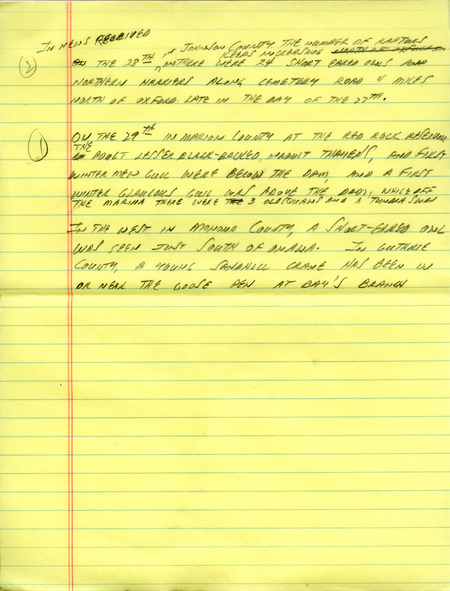 IN NEWS RECEIVED
IN JOHNSON COUNTY THE NUMBER OF RAPTORS
KEEPS INCREASING NORTH OF OXFORD
(2) ON THE 28TH, THERE WERE 24 SHORT EARED OWLS AND
NORTHERN HARRIERS ALONG CEMETERY ROAD 4 MILES
NORTH OF OXFORD LATE IN THE DAY OF THE 27TH.
(1) ON THE 29TH IN MARION COUNTY AT THE RED ROCK RESERVOIR
THE
ADULT LESSER BLACK-BACKED, ADULT THAYER'S, AND FIRST
WINTER MEW GULL WERE BELOW THE DAM, AND A FIRST
WINTER GLAUCOUS GULL WAS ABOVE THE DAM; WHILE OFF
THE MARINA THERE WERE 3 OLDSQUAWS AND A TUNDRA SWAN
IN THE WEST IN MONONA COUNTY, A SHORT-EARED OWL
WAS SEEN JUST SOUTH OF ONAWA. IN GUTHRIE
COUNTY, A YOUNG SANDHILL CRANE HAS BEEN IN
OR NEAR THE GOOSE PEN AT BAY'S BRANCH